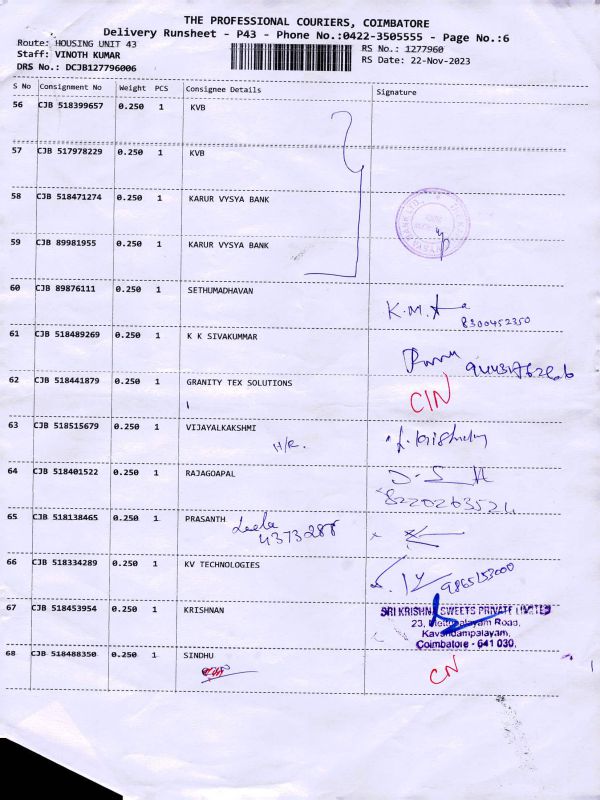 THE PROFESSIONAL COURIERS, COIMBATORE
Delivery Runsheet - P43 - Phone No.:0422-3505555 - Page No.:6
Route: HOUSING UNIT 43
RS No.: 1277960
Staff: VINOTH KUMAR
RS Date: 22-Nov-2023
DRS No.: DCJB127796006
S No Consignment No Weight PCS Consignee Details Signature
56 CJB 518399657 0.250 1 KVB
57 CJB 517978229 0.250 1 KVB
58 CJB 518471274 0.250 1 KARUR VYSYA BANK
59 CJB 89981955 0.250 1 KARUR VYSYA BANK
60 CJB 89876111 0.250 1 SETHUMADHAVAN
K.M.
8300452350
61 CJB 518489269 0.250 1 K K SIVAKUMMAR
62 CJB 518441879 0.250 1 GRANITY TEX SOLUTIONS
CIN
63 CJB 518515679 0.250 1 VIJAYALKAKSHMI
H/R.
64 CJB 518401522 0.250 1 RAJAGOAPAL
65 CJB 518138465 0.250 1 PRASANTH Leela
4373288
66 CJB 518334289 0.250 1 KV TECHNOLOGIES
9865153000
67 CJB 518453954 0.250 1 KRISHNAN
SRI KRISHNA SWEETS PRIVATE LIMITED
23, Mettupalayam Road,
Kavundampalayam,
Coimbatore - 641 030.
68 CJB 518488350 0.250 1 SINDHU
CN